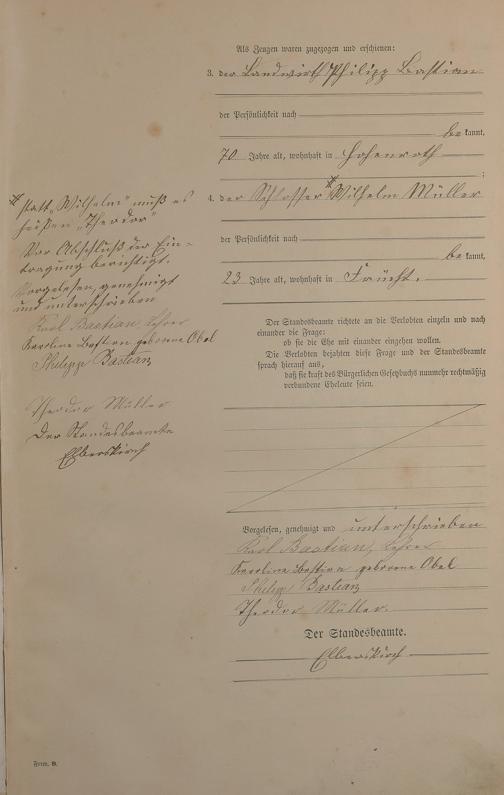 Als Zeugen waren zugezogen und erschienen:
3. der Landwirth Philipp Bastian
der Persönlichkeit nach
bekannt,
70 Jahre alt, wohnhaft in Hohenroth
;
4. der Schlosser Wilhelm Müller
der Persönlichkeit nach
bekannt,
23 Jahre alt, wohnhaft in Frücht.
Der Standesbeamte richtete an die Verlobten einzeln und nach
einander die Frage:
ob sie die Ehe mit einander eingehen wollen.
Die Verlobten bejahten diese Frage und der Standesbeamte
sprach hierauf aus,
daß sie kraft des Bürgerlichen Gesetzbuchs nunmehr rechtmäßig
verbundene Eheleute seien.
Vorgelesen, genehmigt und unterschrieben
Karl Bastian, Lehrer
Karoline Bastian geborene Obel
Philipp Bastian
Theodor Müller.
Der Standesbeamte.
Elberskirch
statt „Wilhelm" muß es
heißen „Theodor"
Vor Abschluß der Ein-
tragung berichtigt.
Vorgelesen, genehmigt
und unterschrieben
Karl Bastian, Lehrer
Karoline Bastian geborene Obel
Philipp Bastian
Theodor Müller
Der Standesbeamte
Elberskirch
Form. B.